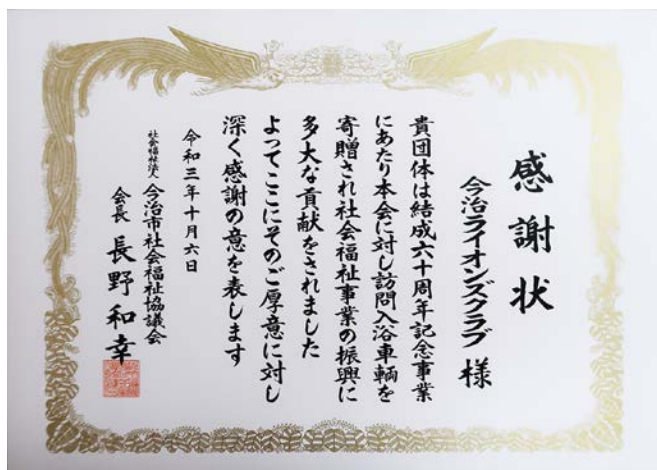 感謝状
今治ライオンズクラブ 様
貴団体は結成六十周年記念事業
にあたり本会に対し訪問入浴車輌を
寄贈され社会福祉事業の振興に
多大な貢献をされました
よってここにそのご厚意に対し
深く感謝の意を表します
令和三年十月六日
社会福祉法人 今治市社会福祉協議会
会長 長野和幸